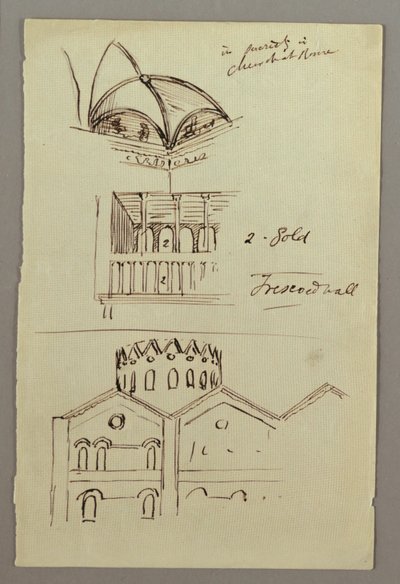 in
Church at Rome
2
2 - Gold
2
Frescoed wall